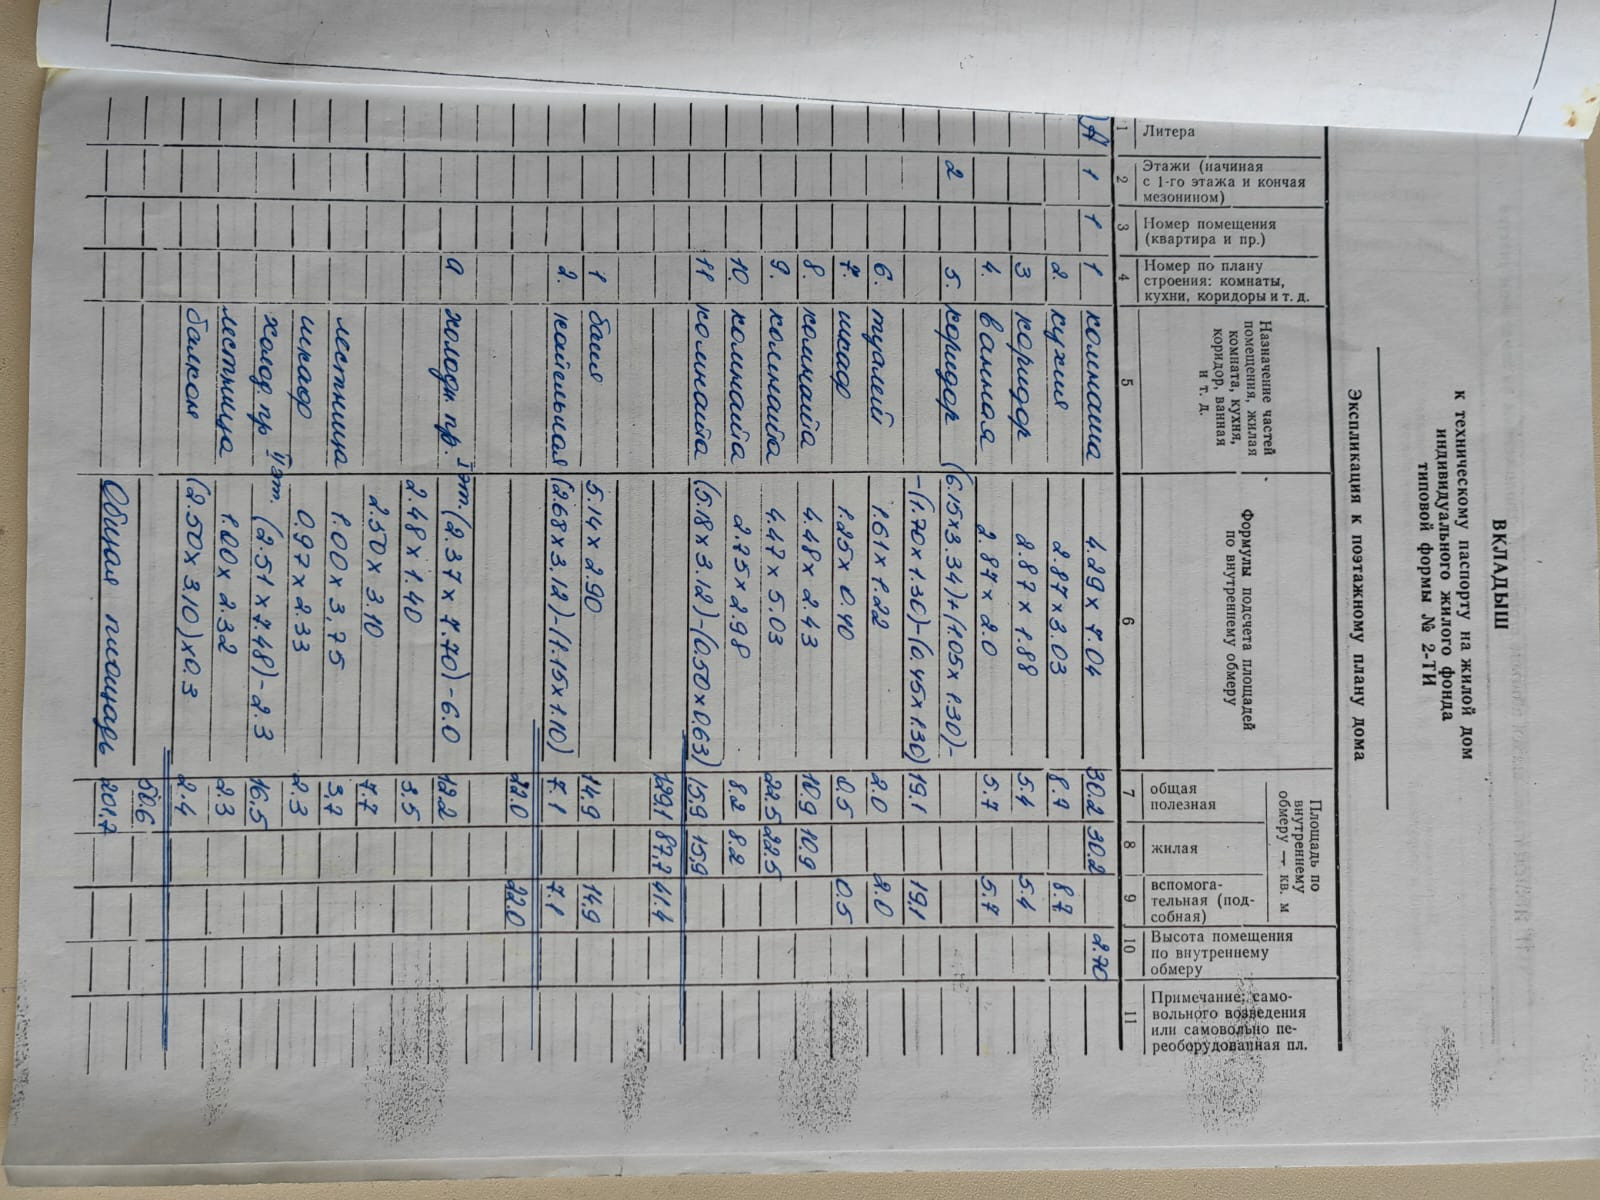 ВКЛАДЫШ
к техническому паспорту на жилой дом
индивидуального жилого фонда
типовой формы № 2-ТИ
Экспликация к поэтажному плану дома
Литера
Этажи (начиная
с 1-го этажа и кончая
мезонином)
Номер помещения
(квартира и пр.)
Номер по плану
строения: комнаты,
кухни, коридоры и т. д.
Назначение частей
помещения, жилая
комната, кухня,
коридор, ванная
и т. д.
Формулы подсчета площадей
по внутреннему обмеру
Площадь по
внутреннему
обмеру — кв. м
общая
полезная
жилая
вспомога-
тельная (под-
собная)
Высота помещения
по внутреннему
обмеру
Примечание: само-
вольного возведения
или самовольно пе-
реоборудованная пл.
1 2 3 4 5 6 7 8 9 10 11
А 1 1 1 комната 4.29 x 7.04 30.2 30.2 2.70
2. кухня 2.87 x 3.03 8.7 8.7
3 коридор 2.87 x 1.88 5.4 5.4
4. ванная 2.87 x 2.0 5.7 5.7
2 5. коридор (6.15 x 3.34)+(1.05 x 1.30)-
-(1.70 x 1.30)-(0.45 x 1.30) 19.1 19.1
6. туалет 1.61 x 1.22 2.0 2.0
7. шкаф 1.25 x 0.40 0.5 0.5
8. комната 4.48 x 2.43 10.9 10.9
9. комната 4.47 x 5.03 22.5 22.5
10. комната 2.75 x 2.98 8.2 8.2
11 комната (5.18 x 3.12)-(0.50 x 0.63) 15.9 15.9
129.1 87.7 41.4
1 баня 5.14 x 2.90 14.9 14.9
2. котельная (2.68 x 3.12)-(1.15 x 1.10) 7.1 7.1
22.0 22.0
а холодн. пр. I эт. (2.37 x 7.70)-6.0 12.2
2.48 x 1.40 3.5
2.50 x 3.10 7.7
лестница 1.00 x 3,75 3,7
шкаф 0.97 x 2.33 2.3
холод. пр II эт. (2.51 x 7.48)-2.3 16.5
лестница 1.00 x 2.32 2.3
балкон (2.50 x 3.10) x 0.3 2.4
50.6
Общая площадь 201,7